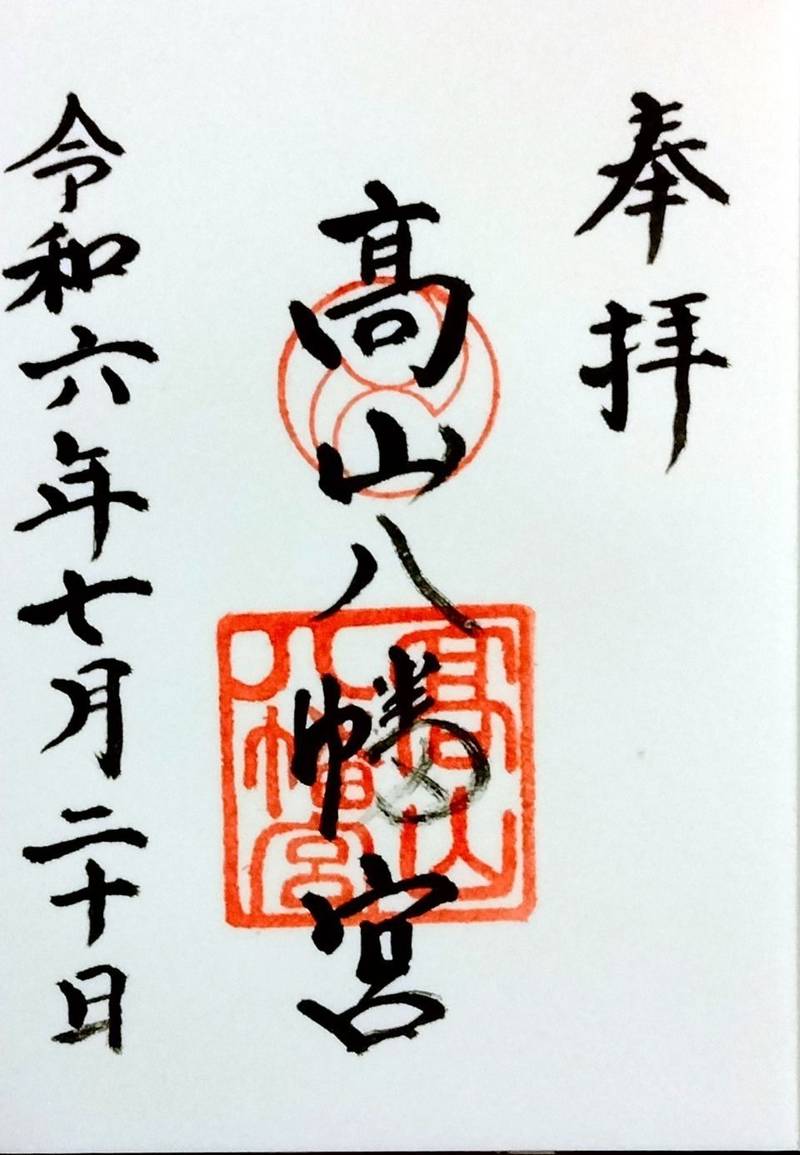 奉拝
髙山八幡宮
髙山
八幡宮
令和六年七月二十日